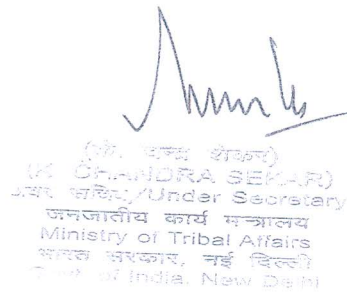 (के. चन्द्र शेकर)
(K. CHANDRA SEKAR)
अवर सचिव/Under Secretary
जनजातीय कार्य मन्त्रालय
Ministry of Tribal Affairs
भारत सरकार, नई दिल्ली
Govt. of India, New Delhi